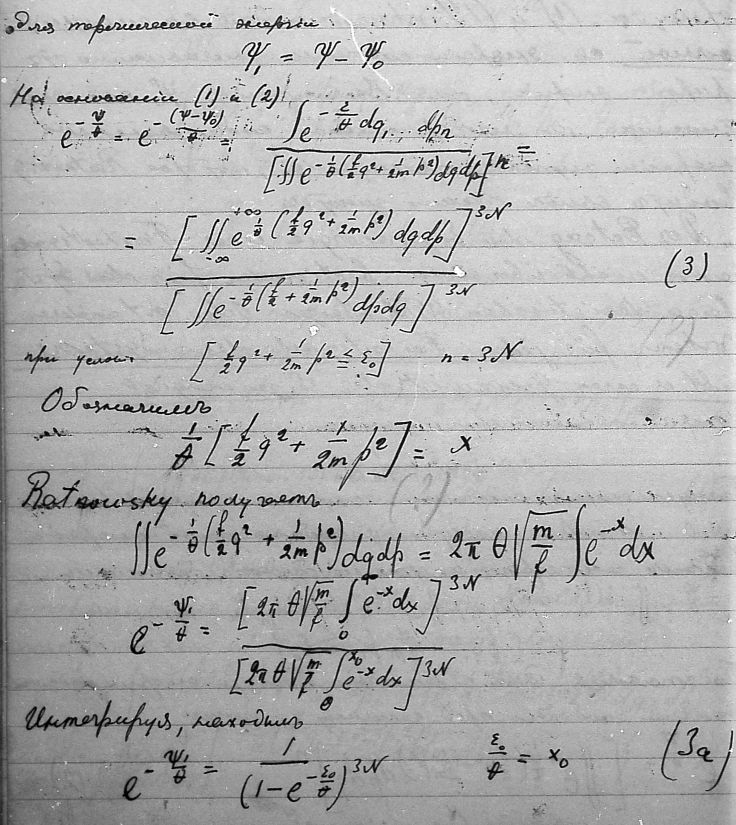 Для термической энергіи
Ψ₁ = Ψ − Ψ₀
На основаніи (1) и (2)
e^{−Ψ/θ} = e^{−(Ψ−Ψ₀)/θ} = ∫e^{−ε/θ}dq₁...dpₙ / [∬e^{−1/θ(f/2 q² + 1/2m p²)}dqdp]ⁿ =
= [∬_{−∞}^{+∞} e^{1/θ(f/2 q² + 1/2m p²)} dqdp]^{3N} / [∬e^{−1/θ(f/2 + 1/2m p²)}dpdq]^{3N} (3)
при услов. [f/2 q² + 1/2m p² ≤ ε₀] n = 3N
Обозначимъ
1/θ [f/2 q² + 1/2m p²] = x
Ratnowsky получаетъ
∬e^{−1/θ(f/2 q² + 1/2m p²)}dqdp = 2π θ√(m/f) ∫e^{−x}dx
e^{−Ψ₁/θ} = [2π θ√(m/f) ∫₀^∞ e^{−x}dx]^{3N} / [2π θ√(m/f) ∫₀^{x₀} e^{−x}dx]^{3N}
Интегрируя, находимъ
e^{−Ψ₁/θ} = 1 / (1−e^{−ε₀/θ})^{3N} ε₀/θ = x₀ (3a)